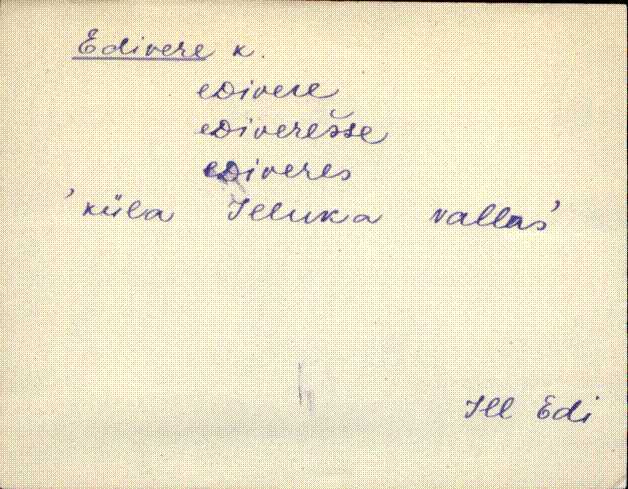 Edivere k.
eDivere
eDiverešse
eDiveres
'küla Illuka vallas'
Ill Edi